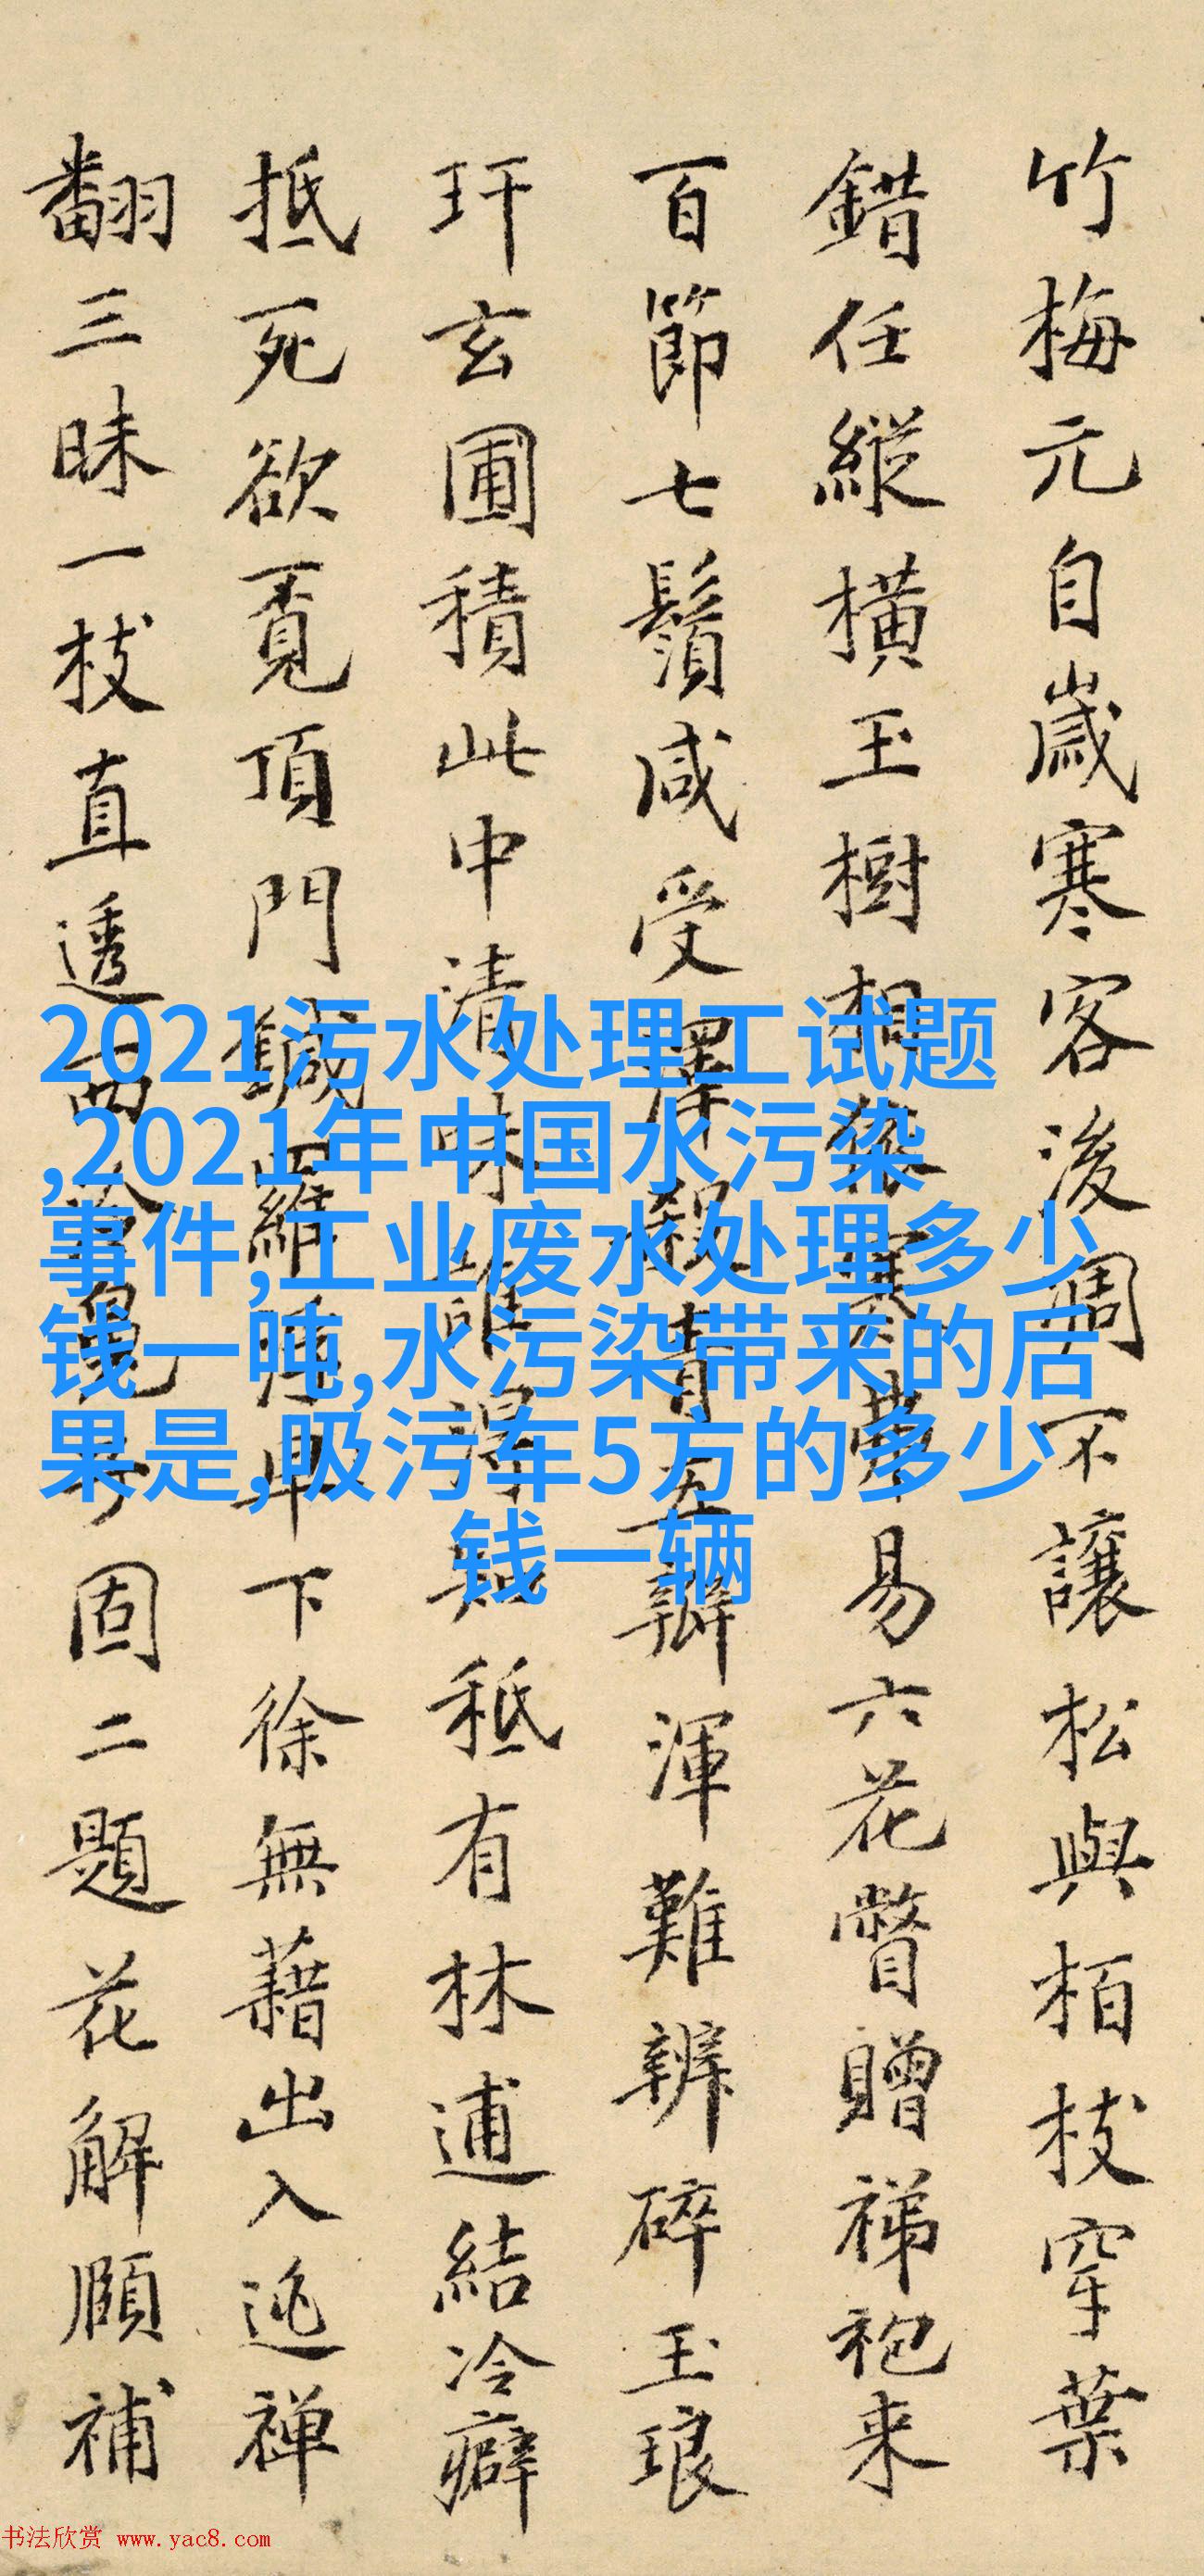 竹梅元自歲寒客後凋不讓松與栢枝穿葉
錯任縱橫玉樹相寒易六花瞥贈祶袍来
百節七鬚咸受澤殺青五瓣渾難辨碎玉琅
玕玄圃積此中清味誰得知秪有林逋結冷癖
抵死欲覔頂門鍼羅下徐無藉出入逃禅
翻三昧一枝直透固二題花解頤補
2021污水处理工试题
,2021年中国水污染
事件,工业废水处理多少
钱一吨,水污染带来的后
果是,吸污车5方的多少
钱一辆
书法欣赏 www.yac8.com